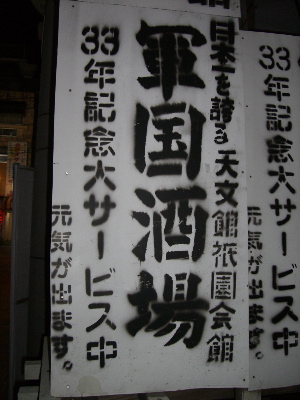 日本一を誇る天文館祇園会館
軍国酒場
33年記念大サービス中
元気が出ます。
33年記念大サービス中
元気が出ます。